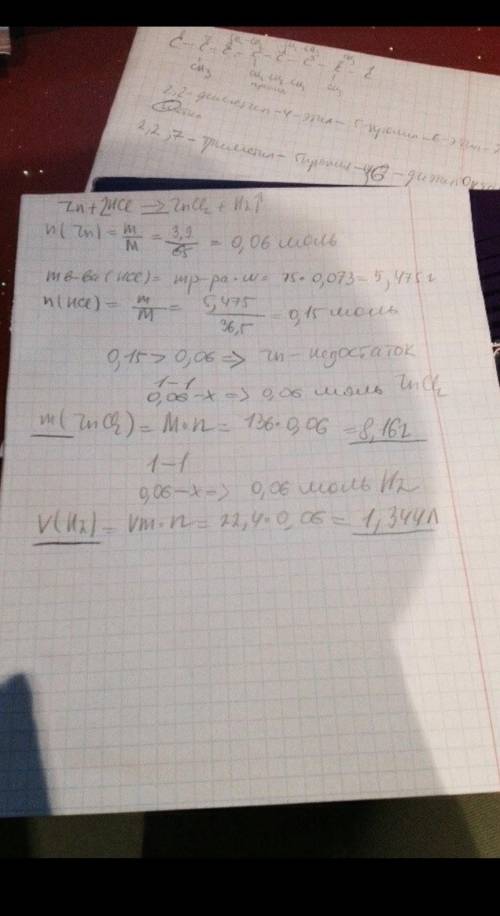 CH₃
2,2-диметил-4-этил-5-пропил-6-этил-
2,2,7-триметил-5пропил-
Zn+2HCl => ZnCl₂ + H₂↑
n(Zn) = m/M = 3,9/65 = 0,06 моль
mв-ва(HCl) = mр-ра·w = 75·0,073 = 5,475г
n(HCl) = m/M = 5,475/36,5 = 0,15 моль
0,15 > 0,06 => Zn - недостаток
1-1
0,06-x => 0,06 моль ZnCl₂
m(ZnCl₂) = M·n = 136·0,06 = 8,16г
1-1
0,06-x => 0,06 моль H₂
V(H₂) = Vm·n = 22,4·0,06 = 1,344л